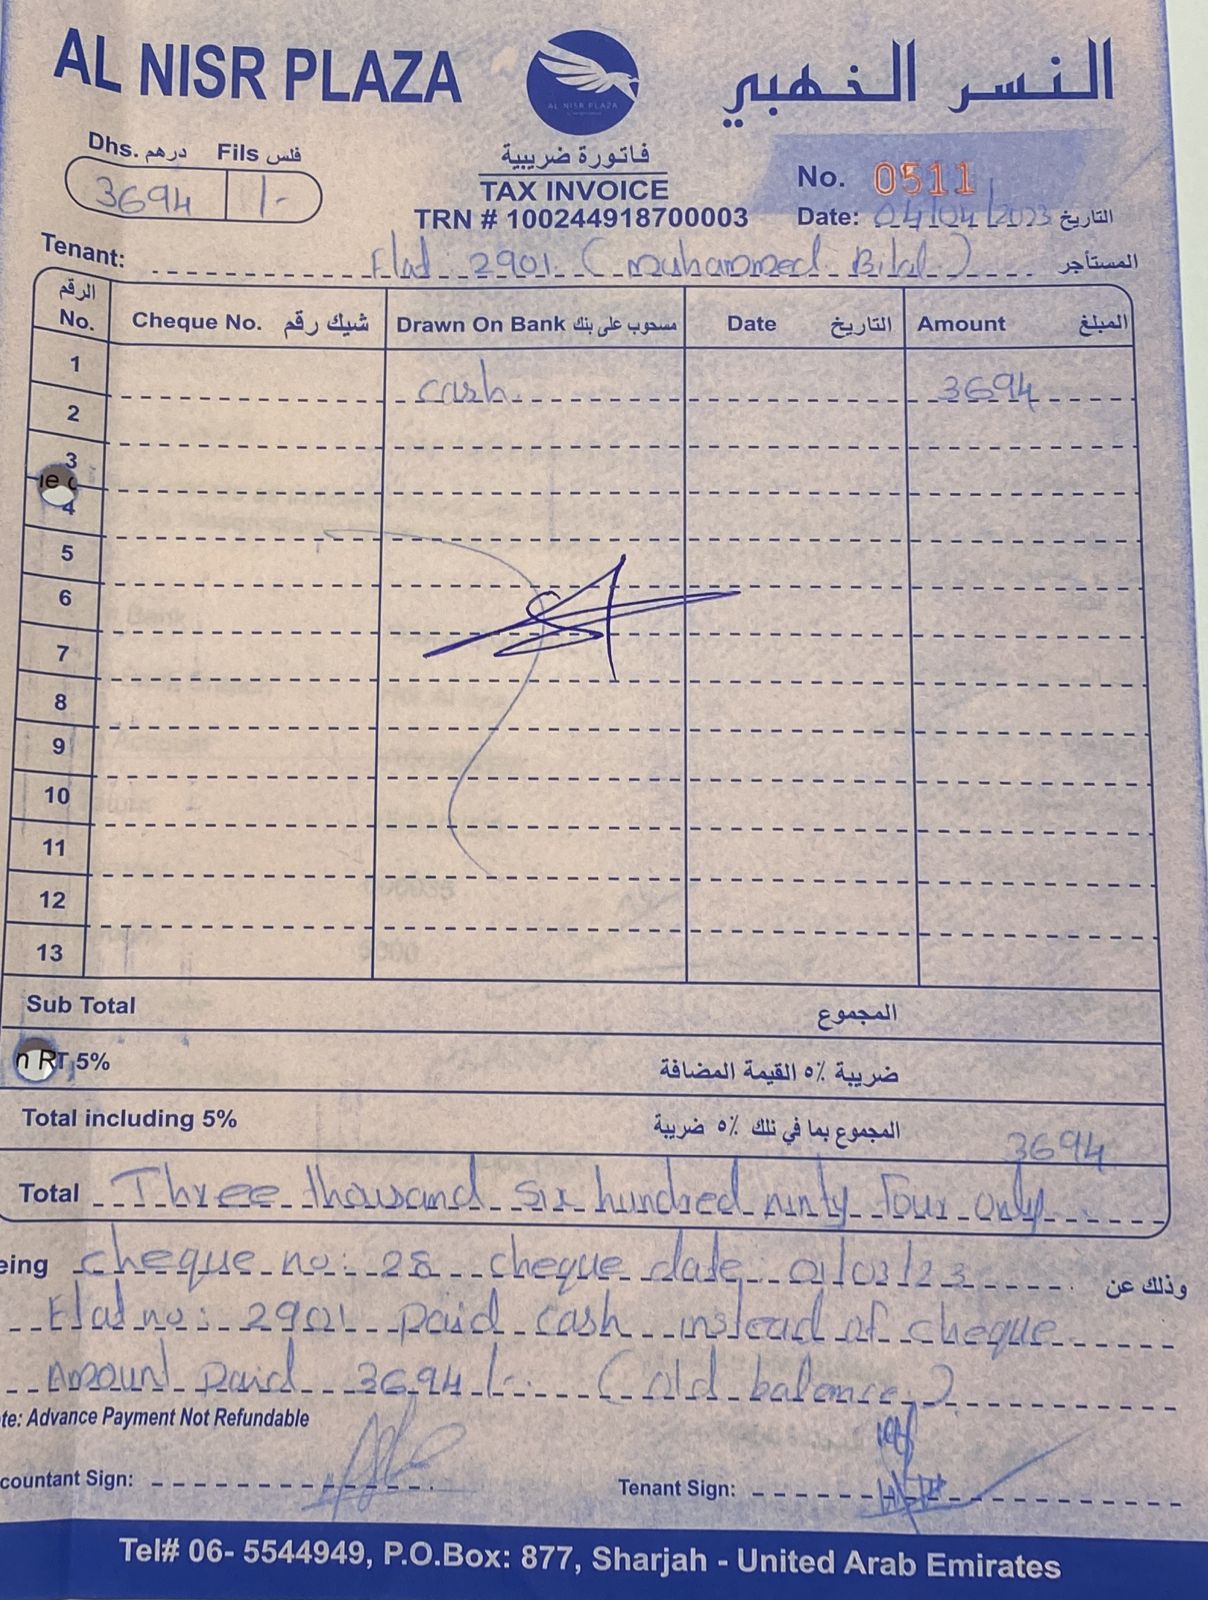 AL NISR PLAZA
AL NISR PLAZA
النسر الذهبي
Dhs. درهم Fils فلس
3694 /-
فاتورة ضريبية
TAX INVOICE
TRN # 100244918700003
No. 0511
Date: 04/04/2023 التاريخ
Tenant: Flat 2901 (muhammed Bilal) المستأجر
الرقم No. Cheque No. شيك رقم Drawn On Bank مسحوب على بنك Date التاريخ Amount المبلغ
1 cash 3694
2
3
4
5
6
7
8
9
10
11
12
13
Sub Total المجموع
5% ضريبة ٥٪ القيمة المضافة
Total including 5% المجموع بما في ذلك ٥٪ ضريبة 3694
Total Three thousand six hundred ninty four only
eing cheque no: 28 cheque date 01/03/23 وذلك عن
Flat no: 2901 paid cash instead of cheque
Amount paid 3694/- (old balance)
te: Advance Payment Not Refundable
countant Sign: Tenant Sign:
Tel# 06- 5544949, P.O.Box: 877, Sharjah - United Arab Emirates